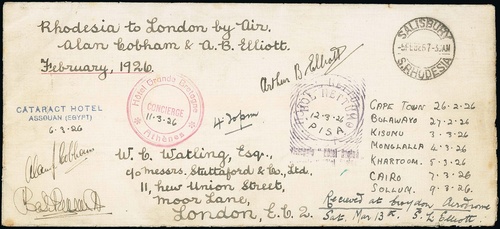 Rhodesia to London by Air.
Alan Cobham & A. B. Elliott.
February, 1926.
SALISBURY
S. RHODESIA
Arthur B. Elliott
CATARACT HOTEL
ASSOUAN (EGYPT)
6.3.26
Hotel Grande Bretagne
CONCIERGE
11-3-26
Athènes
4.20 pm
HOTEL NETTUNO
12-3-26
PISA
CAPE TOWN 26-2-26
BULAWAYO 27-2-26
KISUMU 3-3-26
MONGALLA 4-3-26
KHARTOOM. 5-3-26
CAIRO 7-3-26
SOLLUM. 9-3-26.
Alan J Cobham
W. C. Watling, Esq.,
c/o Messrs. Stuttaford & Co, Ltd.
11, New Union Street,
Moor Lane,
London, E.C.2.
Received at Croydon Aerodrome
Sat. Mar 13th. S. L. Elliott.